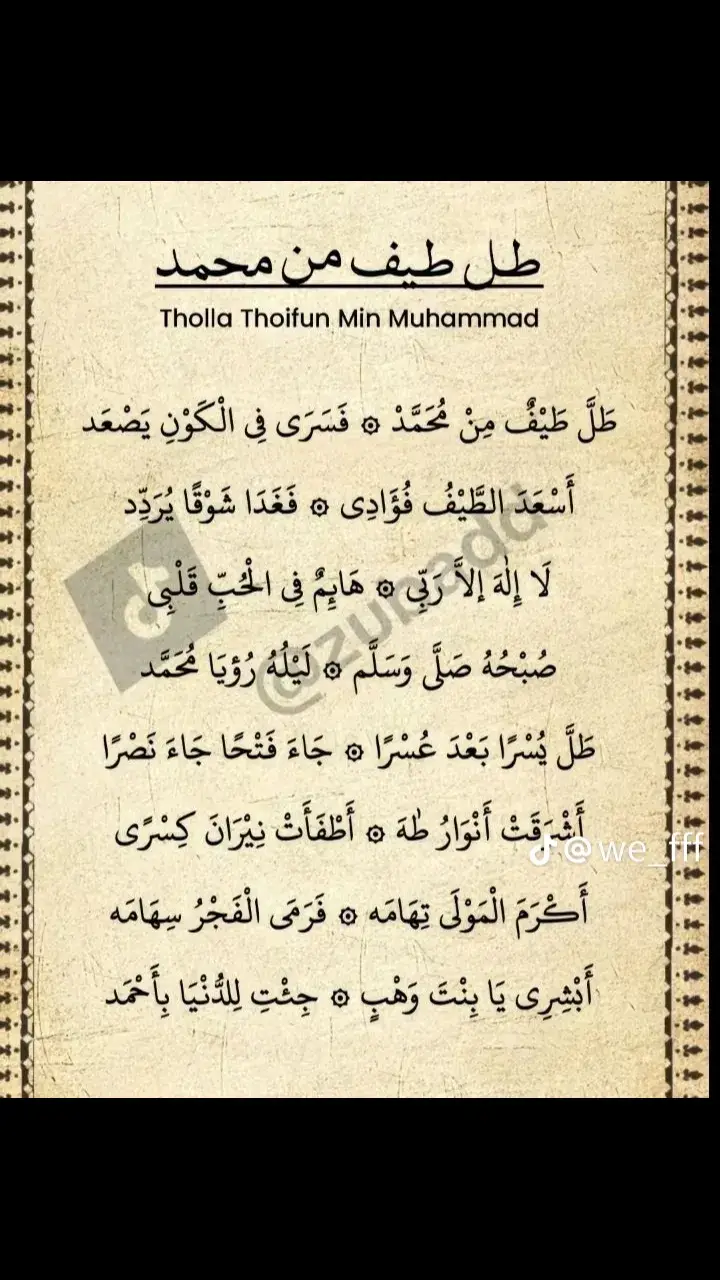 طل طيف من محمد
Tholla Thoifun Min Muhammad
طَلَّ طَيْفٌ مِنْ مُحَمَّدْ ۞ فَسَرَى فِى الْكَوْنِ يَصْعَد
أَسْعَدَ الطَّيْفُ فُؤَادِى ۞ فَغَدَا شَوْقًا يُرَدِّد
لَا إِلٰهَ إلاَّ رَبِّى ۞ هَائِمٌ فِى الْحُبِّ قَلْبِى
صُبْحُهُ صَلَّى وَسَلَّم ۞ لَيْلُهُ رُؤيَا مُحَمَّد
طَلَّ يُسْرًا بَعْدَ عُسْرًا ۞ جَاءَ فَتْحًا جَاءَ نَصْرًا
أَشْرَقَتْ أَنْوَارُ طٰهَ ۞ أَطْفَأَتْ نِيْرَانَ كِسْرًى
أَكْرَمَ الْمَوْلَى تِهَامَه ۞ فَرَمَى الْفَجْرُ سِهَامَه
أَبْشِرِى يَا بِنْتَ وَهْبٍ ۞ جِئْتِ لِلدُّنْيَا بِأَحْمَد
@zubadd
@we_fff